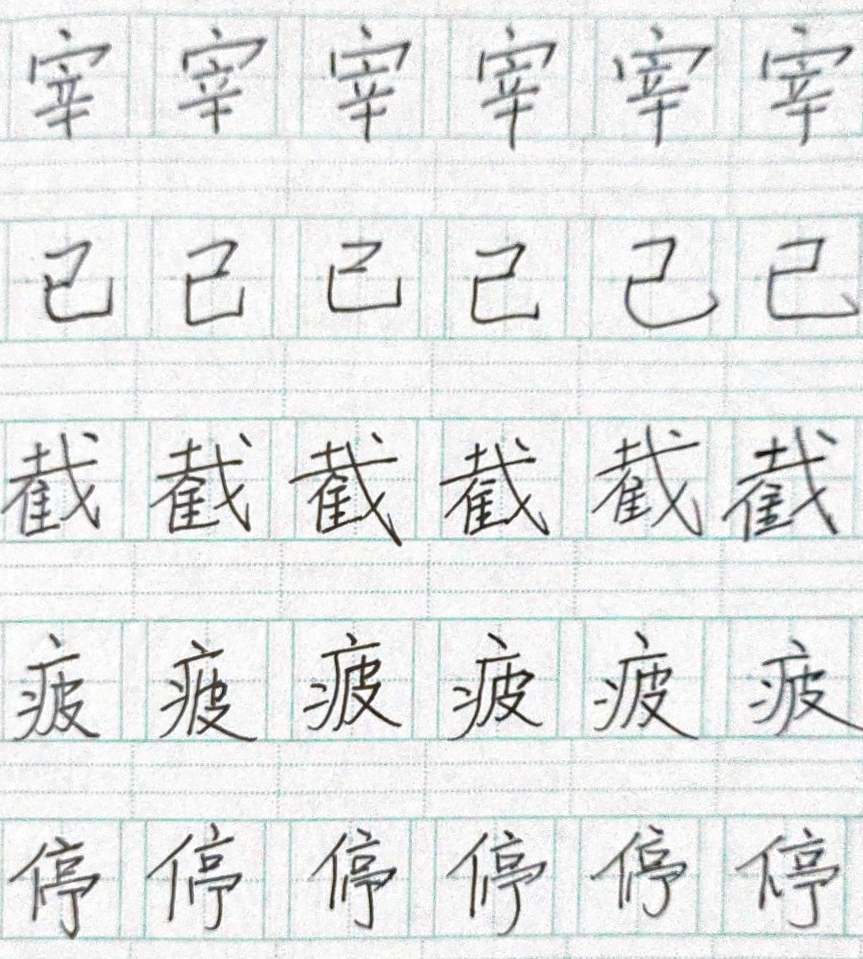 宰宰宰宰宰宰
己己己己己己
截截截截截截
疲疲疲疲疲疲
停停停停停停